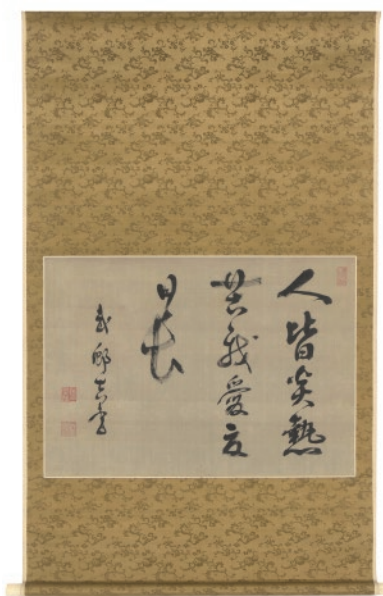 人皆炎熱
苦我愛夏
日長
書